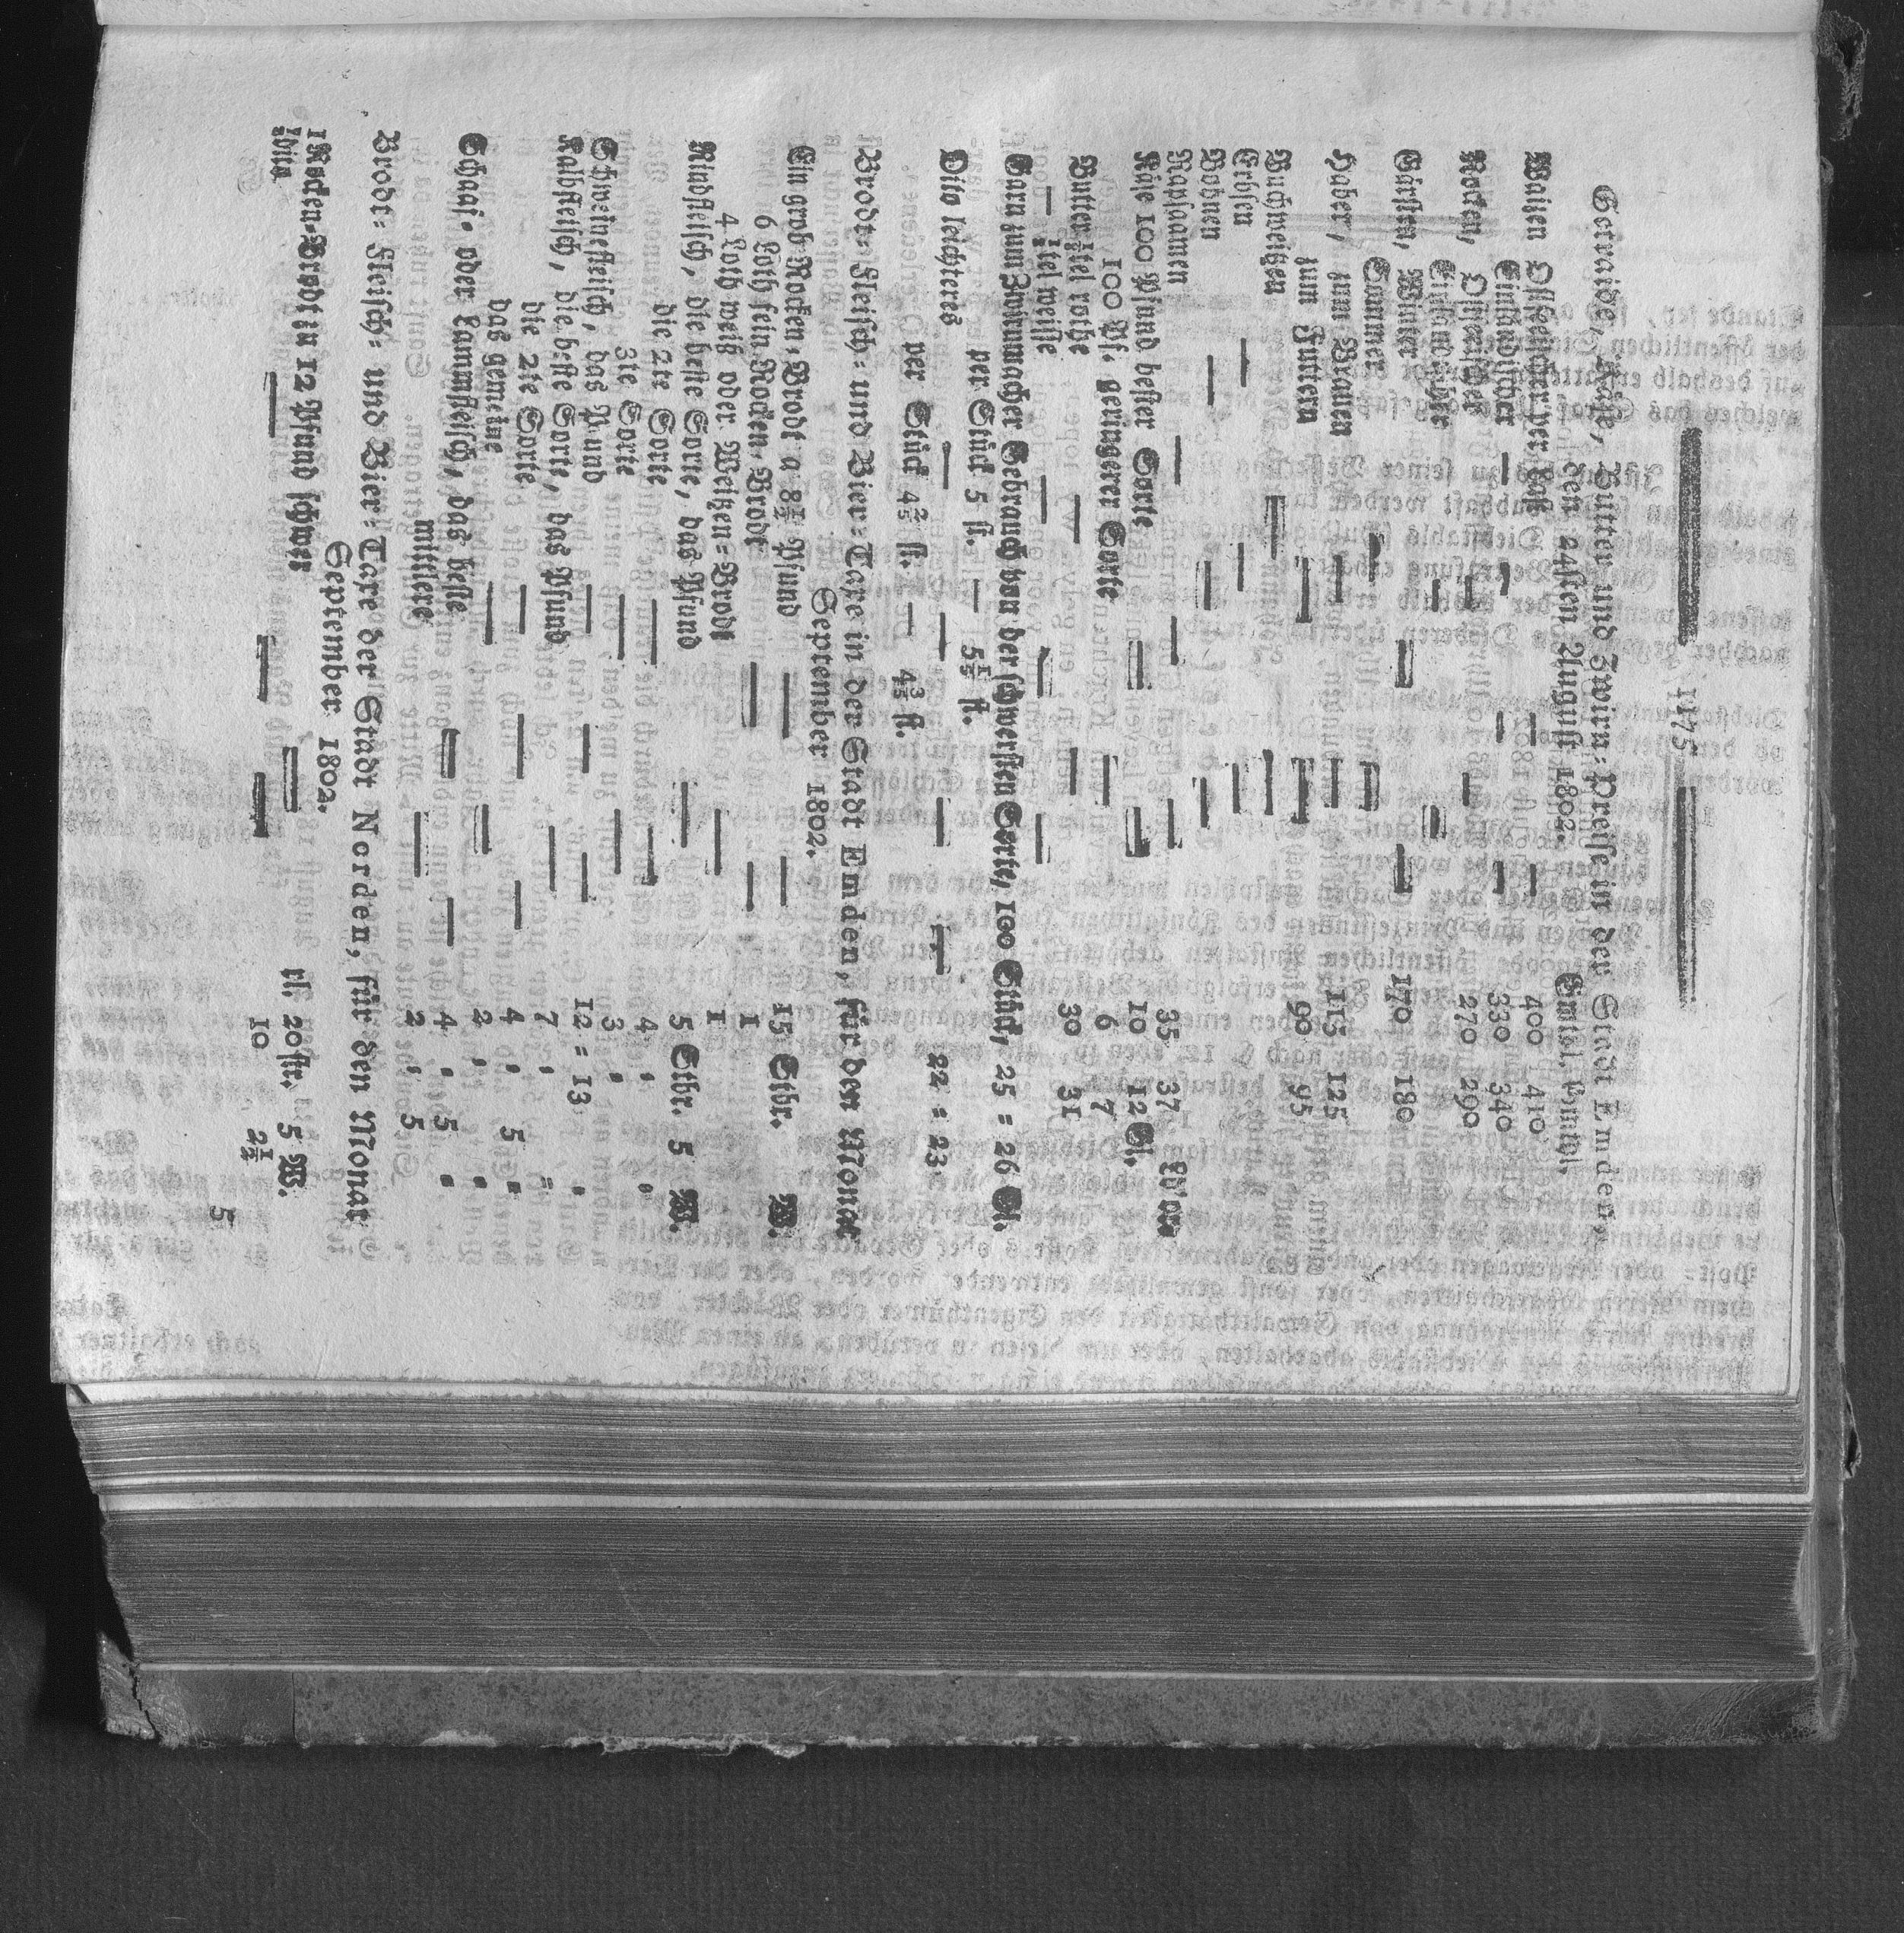 1175
Getraide, Käse, Butter und Zwirn-Preise in der Stadt Emden,
den 24sten August 1802.
Emdl. Courant.
Waitzen Ostseescher per Last — — 400 410
Einländischer — — — 330 340
Rocken, Ostseescher — — 270 290
Einländischer — —
Gärsten, Winter — — 170 180
Sommer — —
Haber, zum Brauen — — 115 125
zum Futtern — — 90 95
Buchweitzen — —
Erbsen — — —
Bohnen — — —
Rapsaamen — — — Ldor.
Käse 100 Pfund bester Sorte — — 35 37
100 Pf. geringerer Sorte — 10 12 Gl.
Butter ¼tel rothe — — 6 7
— ⅛tel weisse — — — 30 31
Garn zum Zwirnmacher Gebrauch von der schwersten Sorte, 100 Stück, 25 = 26 Gl.
per Stück 5 fl. — 5⅕ fl.
Dito leichteres — — — — 22 = 23
per Stück 4⅖ fl. — 4⅗ fl.
Brodt- Fleisch- und Bier-Taxe in der Stadt Emden, für den Monat
September 1802.
Ein grob Rocken-Brodt a 8½ Pfund — — 15 Stbr. W.
6 Loth fein Rocken-Brodt — — 1
4 Loth weiß oder Weitzen-Brodt — 1
Rindfleisch, die beste Sorte, das Pfund — 5 Stbr. 5 W.
die 2te Sorte — — 4
3te Sorte — — 3
Schweinefleisch, das Pfund — — — 12 = 13
Kalbfleisch, die beste Sorte, das Pfund — 7
die 2te Sorte — — — 4 5
das gemeine — — 2
Schaaf- oder Lammfleisch, das beste — — 4 5
mittlere — 2 5
Brodt- Fleisch- und Bier-Taxe der Stadt Norden, für den Monat
September 1802.
1 Rocken-Brodt zu 12 Pfund schwer — fl. 20 str. 5 W.
½ dito — — — 10 2½
5